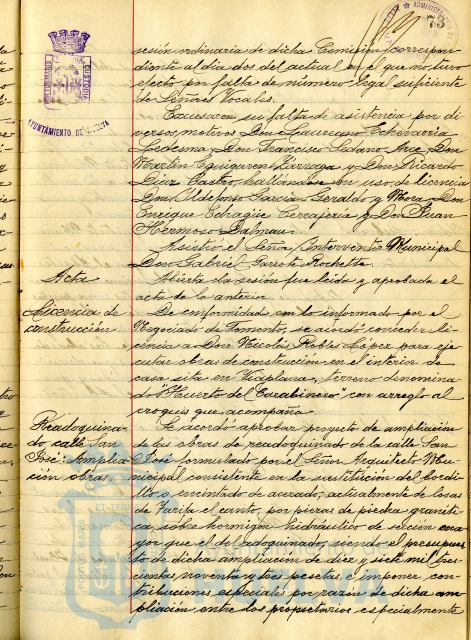 73
AYUNTAMIENTO DE HUELVA
sesión ordinaria de dicha Comisión correspon
diente al día dos del actual en el que no tuvo
efecto por falta de número legal suficiente
de Señores Vocales.
Excusaron su falta de asistencia por di
versos motivos Don Laureano Echevarría
Ledesma Don Francisco Don
Martín Eguiguren Lizaga y Don Ricardo
Díaz Castro, hallándose en uso de licencia
Don Ildefonso García Geraldo y Mora, Don
Enrique Echagüe y Don Juan
Hermoso Dalmau.
Asistió el Señor Interventor Municipal
Don Gabriel Rochette.
Acta
Abierta la sesión fue leido y aprobada el
acta de la anterior.
Licencia de
construcción
De conformidad con lo informado por el
Negociado de Fomento, se acordó conceder li
cencia a Don Nicolás Robles López para eje
cutar obras de construcción en el interior de
casa sita en Viaplana, terreno denomina
do "Huerto del Carabinero" con arreglo al
croquis que acompaña.
Readoquina
do calle San
José: Amplia
ción obras.
Se acordó aprobar proyecto de ampliación
de las obras de readoquinado de la calle San
José formulado por el Señor Arquitecto Mu
nicipal consistente en la sustitución del bordi
llo o encintado de acerado, actualmente de losas
de Tarifa el canto, por piezas de piedra graníti
ca sobre hormigón hidráulico de sección ma
yor que el del adoquinado, siendo el presupues
to de dicha ampliación de diez y siete mil tres
cientas noventa y tres pesetas, e imponer con
tribuciones especiales por razón de dicha am
pliación entre los propietarios especialmente